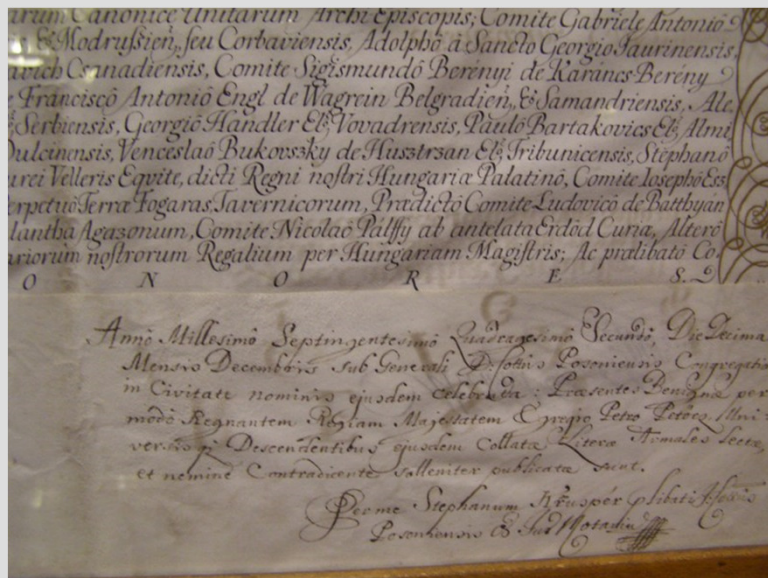 arum Canonicè Unitarum Archi Episcopis; Comite Gabriele Antoniô
& Modrussien, seu Corbaviensis, Adolphô à Sanctô Georgiô Jaurinensis,
Csanadiensis, Comite Sigismundô Berényi de Karáncs-Berény
Franciscô Antoniô Engl de Wagrein Belgradien, & Samandriensis, Ale,
Serbiensis, Georgiô Handler El, Vovadrensis, Paulô Bartakovics El, Almi
Dulcinensis, Venceslaô Bukovszky de Husztrzan El, Tribunicensis, Stephanô
urei Velleris Eqvite, dicti Regni nostri Hungariæ Palatinô, Comite Iosephô Ess
erpetuô Terræ Fogaras, Tavernicorum, Prædictô Comite Ludovicô de Batthyan
lantha Agazonum, Comite Nicolaô Pálffy ab antelata Erdöd Curiæ, Alterô
riorum nostrorum Regalium per Hungariam Magistris; Ac prælibatô Co.
O N O R E S.
Annô Millesimô Septingentesimô Quadragesimô Secundô, Die Decima
Mensis Decembris sub Generali Posoniensis Congregatio
in Civitate nominis ejusdem celebrata: Præsentes Benigne per
modô Regnantem Regiam Majestatem Egregio Petro Uni:
versis qz Descendentibus ejusdem Collatæ Literæ Armales lectæ,
et nemine Contradicente solleniter publicatæ sunt.
Per me Stephanum plibati
Posoniensis & Jur Notariu